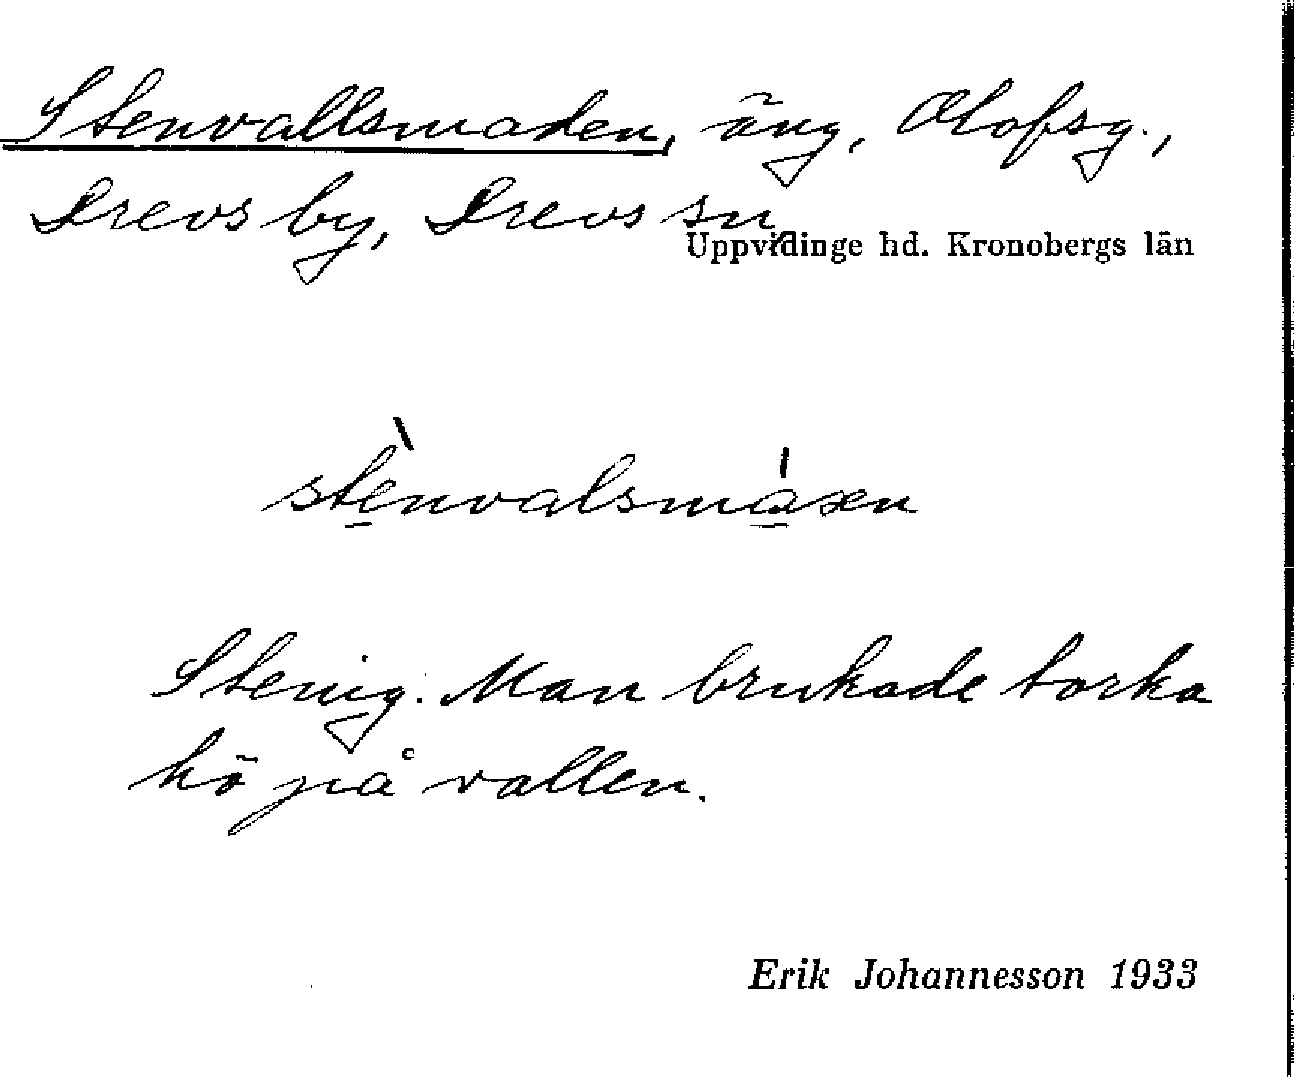 Stenvallsmaden, äng, Olofsg.,
Drevs by, Drevs sn,
Uppvidinge hd. Kronobergs län
stènvalsmáxen
Stenig. Man brukade torka
hö på vallen.
Erik Johannesson 1933